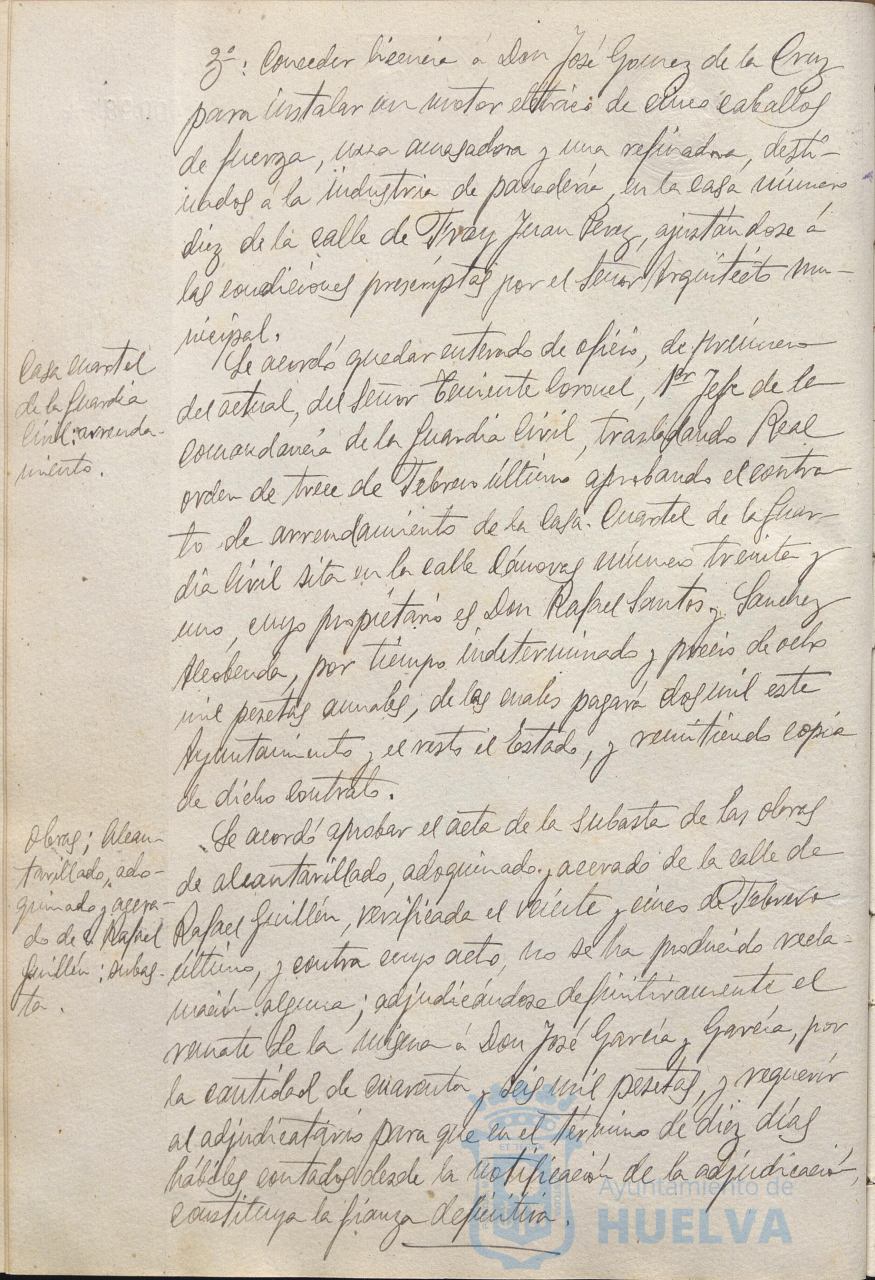 3º: Conceder licencia á Don José Gomez de la Cruz
para instalar un motor eléctrico de cinco caballos
de fuerza, una amasadora y una refinadora, desti-
nados á la industria de panadería, en la casa número
diez de la calle de Fray Juan Perez, ajustándose á
las condiciones prescriptas por el Señor Arquitecto mu-
nicipal.
Casa cuartel
de la Guardia
Civil: arrenda-
miento.
Se acordó quedar enterado de oficio, de primero
del actual, del Señor Teniente Coronel, 1er Jefe de la
Comandancia de la Guardia Civil, trasladando Real
orden de trece de Febrero último aprobando el contra-
to de arrendamiento de la Casa-Cuartel de la Guar-
dia Civil sita en la calle Cánovas número treinta y
uno, cuyo propietario es Don Rafael Santos y Sanchez
Alcobenda, por tiempo indeterminado y precio de ocho
mil pesetas anuales, de las cuales pagará dos mil este
Ayuntamiento y el resto el Estado, y remitiendo copia
de dicho contrato.
Obras; Alcan-
tarillado, ado-
quinado y acera-
do de C. Rafael
Guillén: subas-
ta.
Se acordó aprobar el acta de la subasta de las obras
de alcantarillado, adoquinado y acerado de la calle de
Rafael Guillén, verificada el veinte y cinco de Febrero
último, y contra cuyo acto, no se ha producido recla-
mación alguna; adjudicándose definitivamente el
remate de la misma á Don José García y García, por
la cantidad de cuarenta y seis mil pesetas, y requerir
al adjudicatario para que en el término de diez días
hábiles contados desde la notificación de la adjudicación,
constituya la fianza definitiva.
Ayuntamiento de
HUELVA